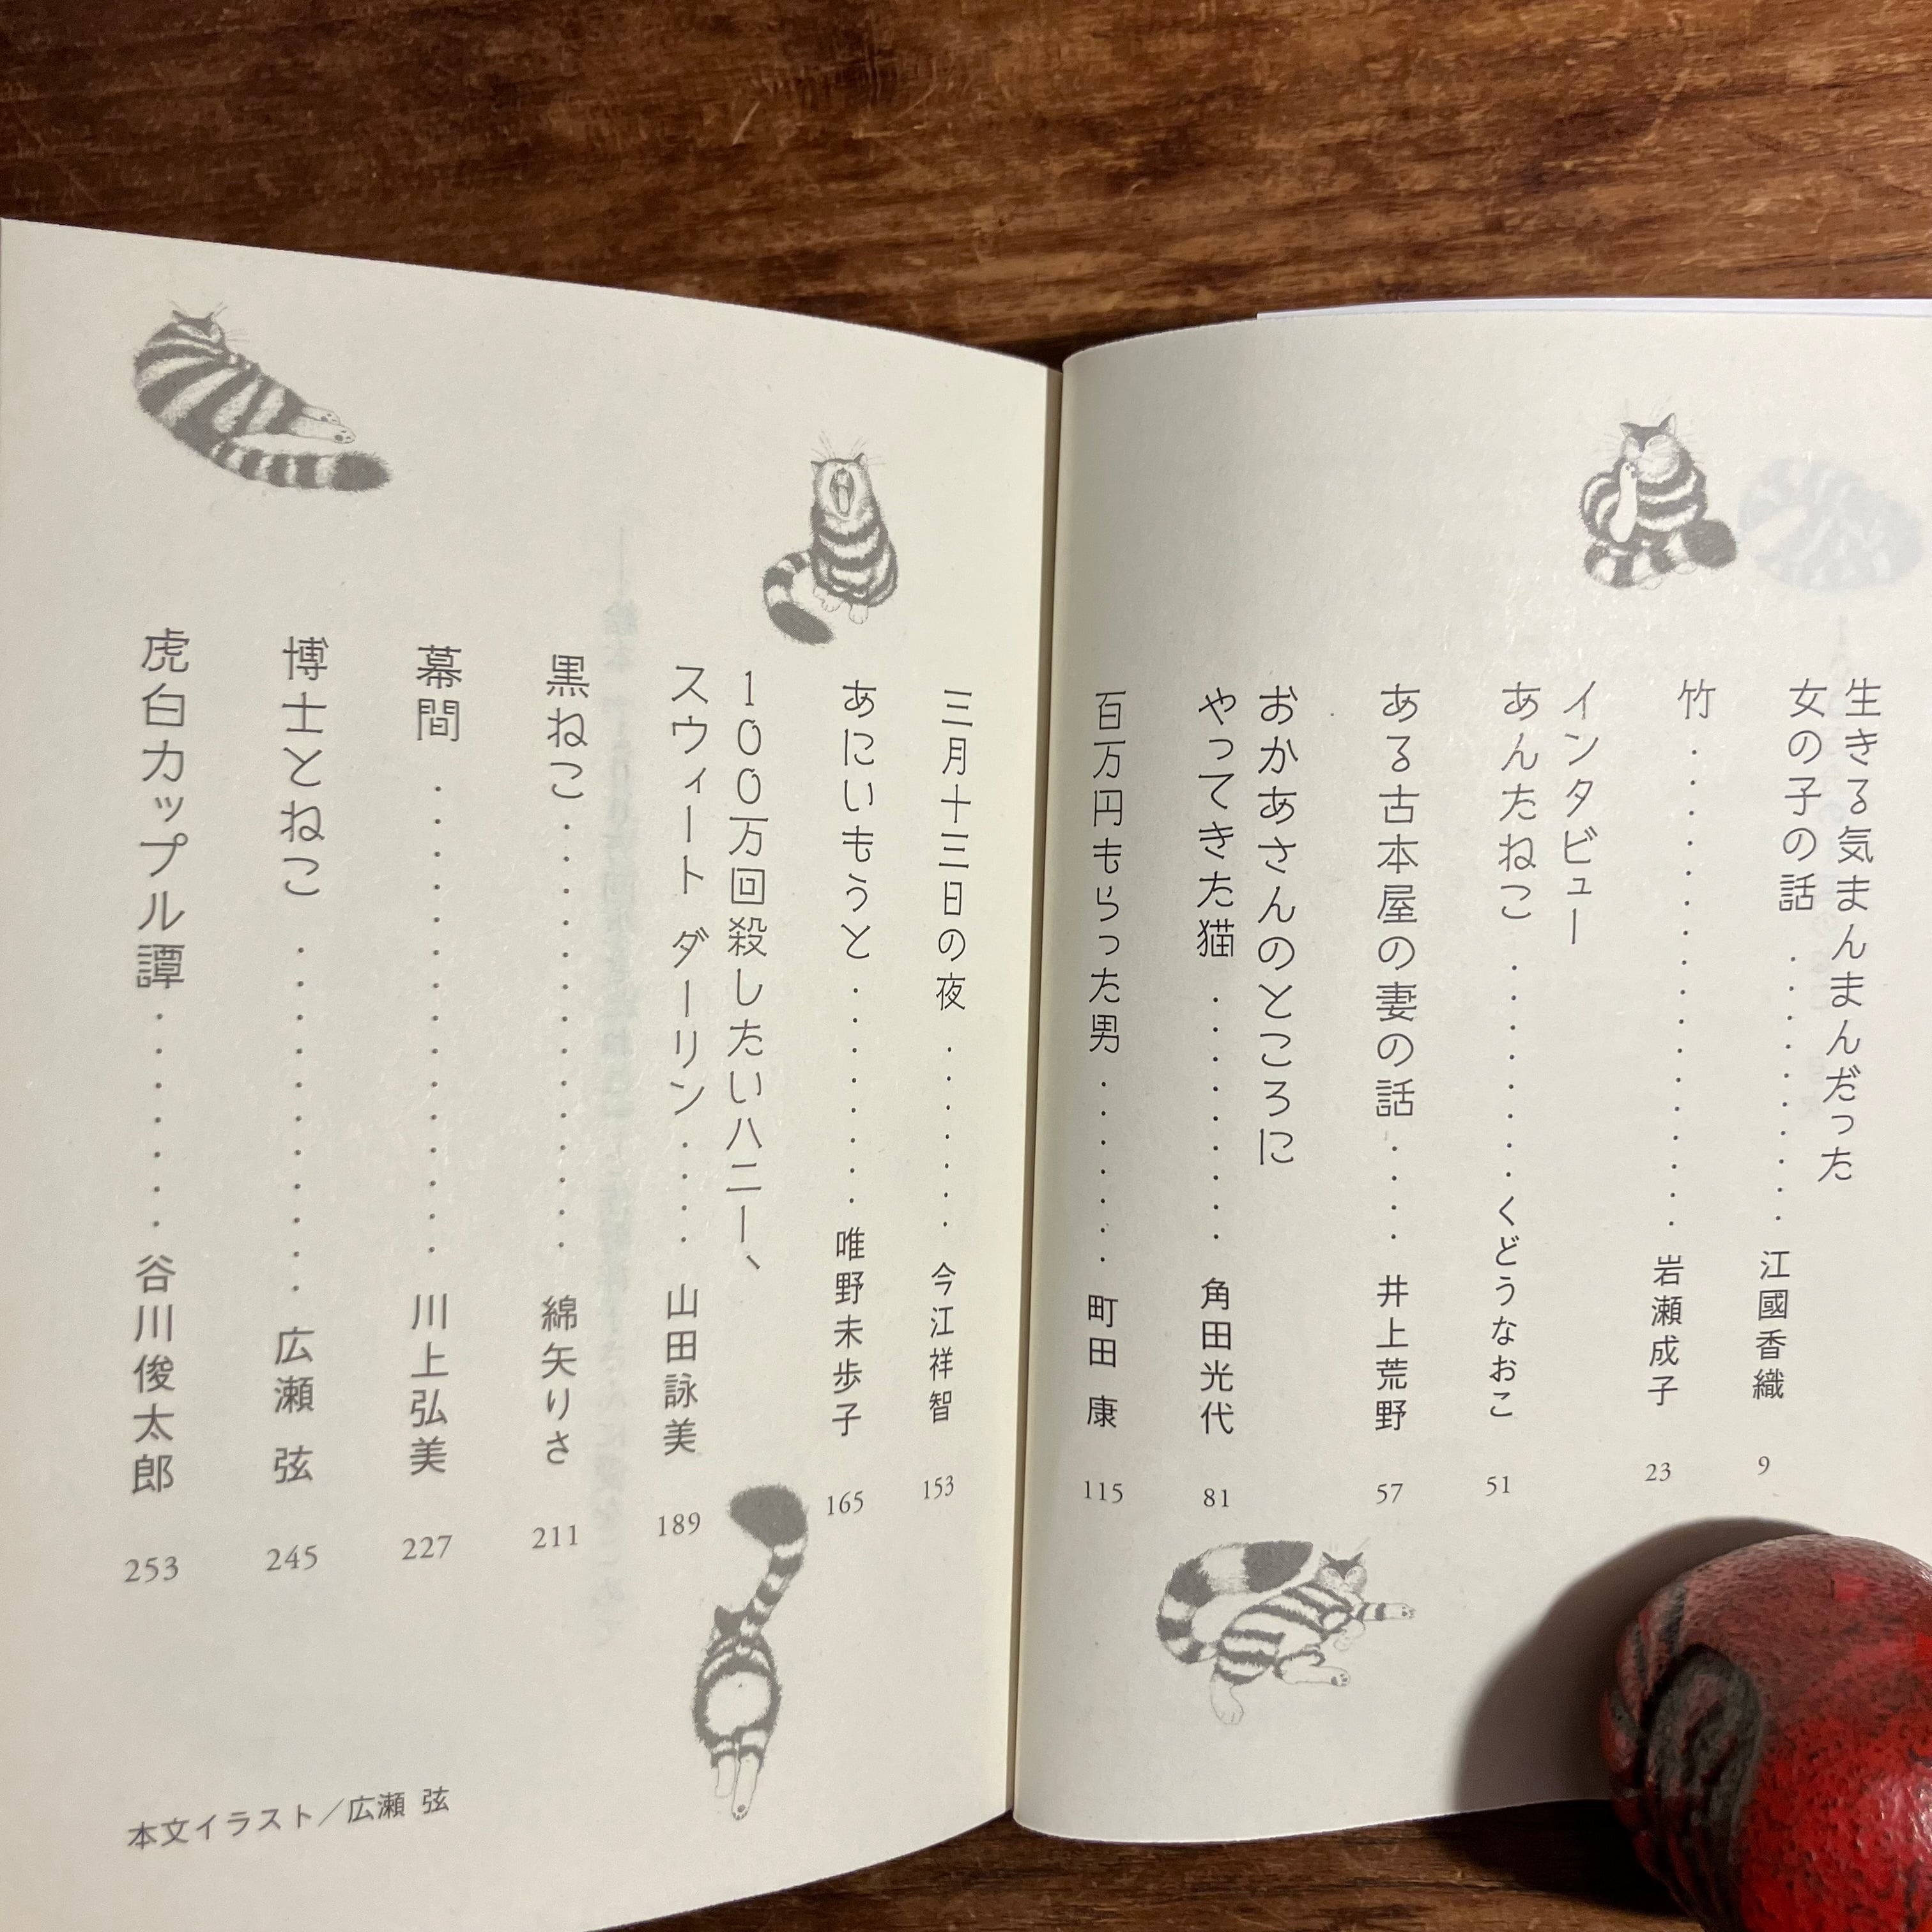 生きる気まんまんだった
女の子の話 ・・・・・・・・・・ 江國香織 9
竹 ・・・・・・・・・・・・・・・・・ 岩瀬成子 23
インタビュー
あんたねこ ・・・・・・・・ くどうなおこ 51
ある古本屋の妻の話 ・・・・ 井上荒野 57
おかあさんのところに
やってきた猫 ・・・・・・・・・ 角田光代 81
百万円もらった男 ・・・・・・・ 町田 康 115
三月十三日の夜 ・・・・・・・ 今江祥智 153
あにいもうと ・・・・・・・・ 唯野未歩子 165
100万回殺したいハニー、
スウィート ダーリン ・・・・ 山田詠美 189
黒ねこ ・・・・・・・・・・・・・・ 綿矢りさ 211
幕間 ・・・・・・・・・・・・・・・ 川上弘美 227
博士とねこ ・・・・・・・・・・・ 広瀬 弦 245
虎白カップル譚 ・・・・・・・ 谷川俊太郎 253
本文イラスト／広瀬 弦